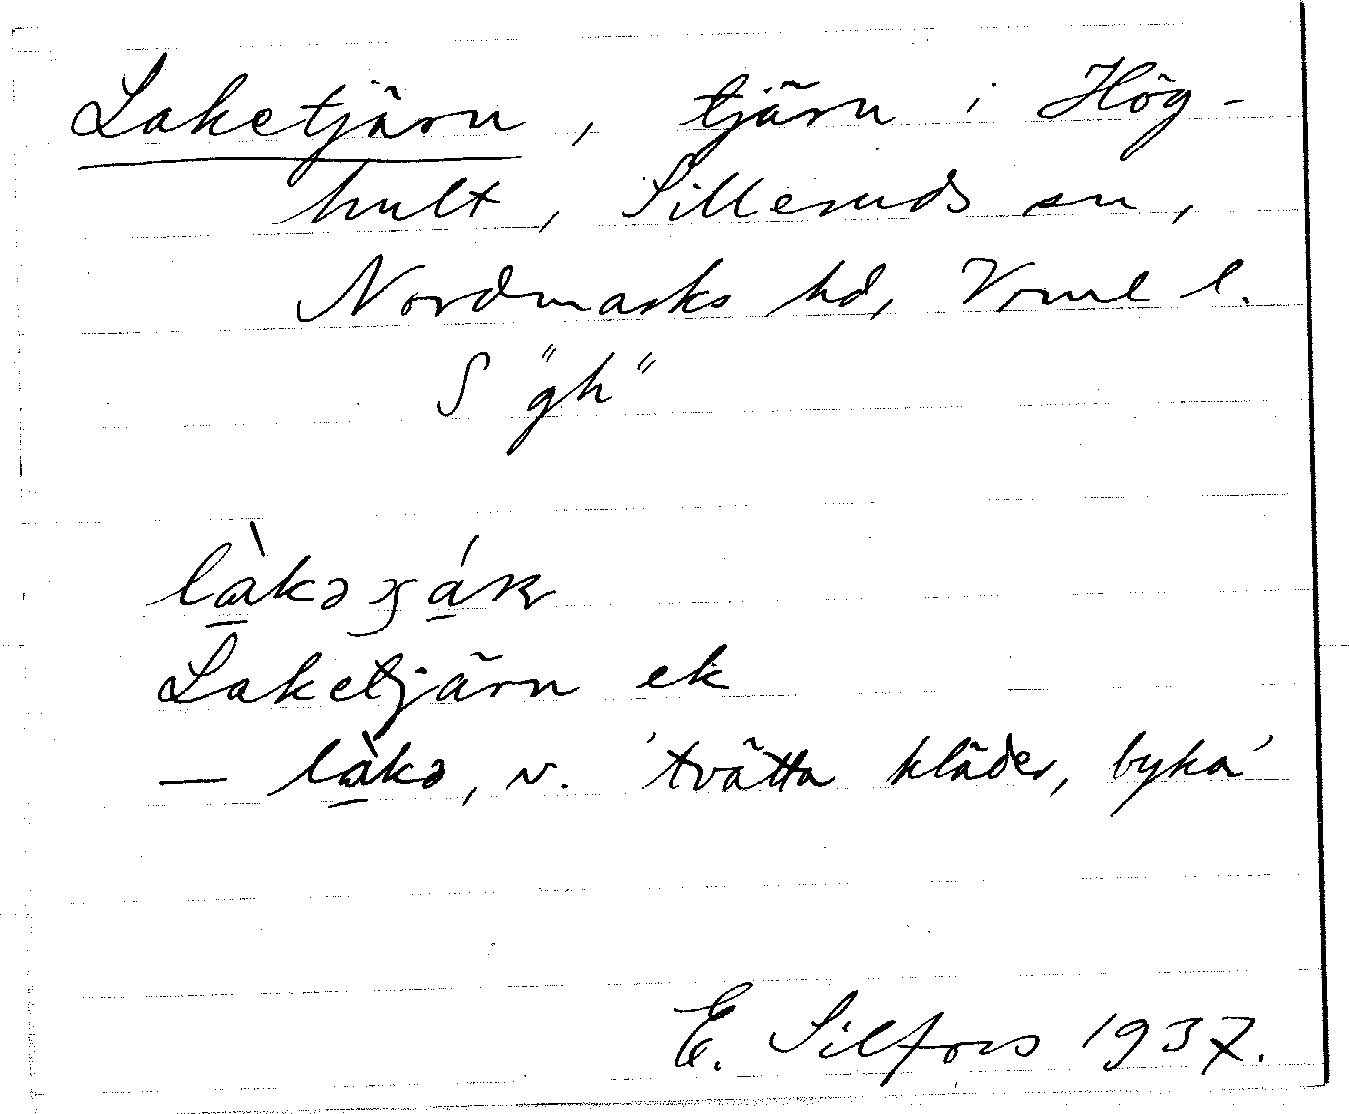 Laketjärn, tjärn i Hög-
hult, Silleruds sn,
Nordmarks hd, Vrml l.
S "gh"
Laketjärn ek
— làkə, v. 'tvätta kläder, byka'
E. Silfors 1937.